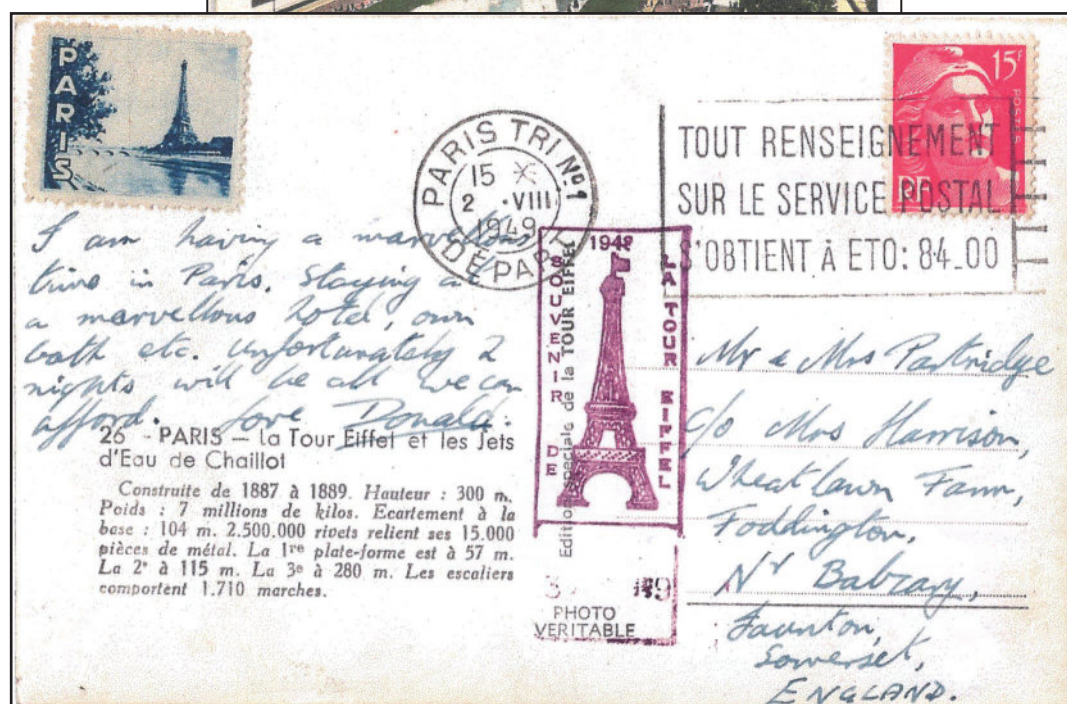 PARIS
15F
POSTES
RF
PARIS TRI No1
15
2 VIII
1949
DÉPART
TOUT RENSEIGNEMENT
SUR LE SERVICE POSTAL
S'OBTIENT À ETO: 84_00
I am having a marvellous
time in Paris. Staying at
a marvellous hotel, own
bath etc. Unfortunately 2
nights will be all we can
afford. Love Donald.
26 - PARIS — La Tour Eiffel et les Jets
d'Eau de Chaillot
Construite de 1887 à 1889. Hauteur : 300 m.
Poids : 7 millions de kilos. Ecartement à la
base : 104 m. 2.500.000 rivets relient ses 15.000
pièces de métal. La 1re plate-forme est à 57 m.
La 2e à 115 m. La 3e à 280 m. Les escaliers
comportent 1.710 marches.
1949
SOUVENIR DE
LA TOUR EIFFEL
Edition spéciale de la TOUR EIFFEL
PHOTO
VERITABLE
Mr & Mrs Partridge
c/o Mrs Harrison,
Wheatlawn Farm,
Foddington,
Nr Babcary,
Taunton,
Somerset,
ENGLAND.